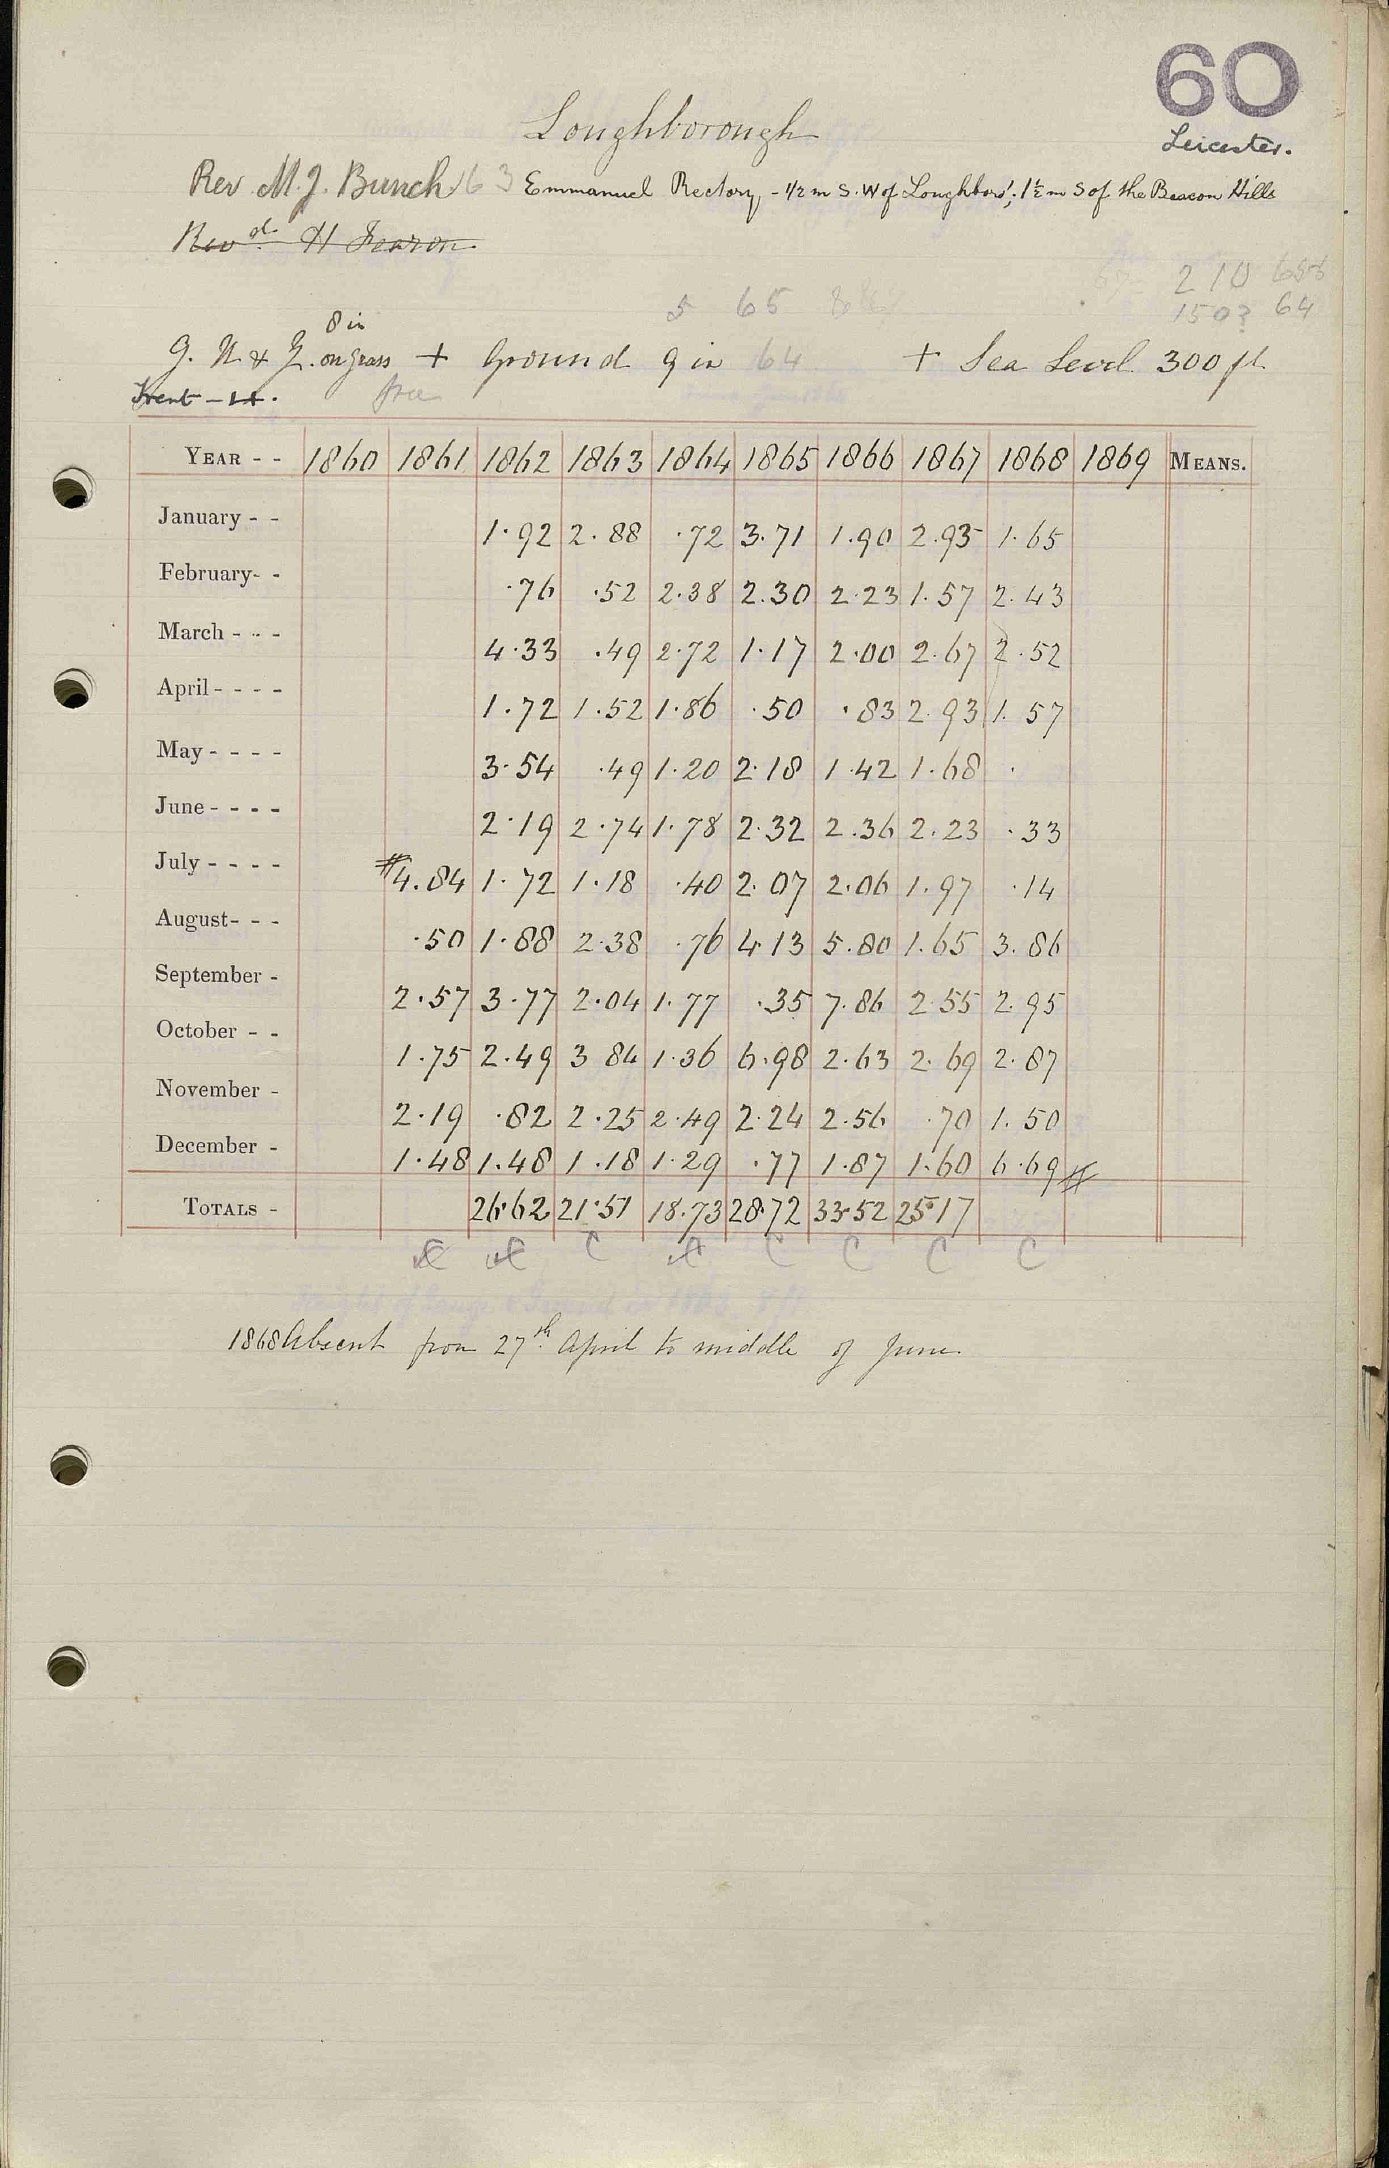 60
Leicester.
Loughborough
Rev M. J. Bunch 63 Emmanuel Rectory - 1/2 m S.W of Loughboro'; 1 1/2 m S of the Beacon Hills
Revd. H Fearon.
210
5 65
150? 64
8 in
G. N & Z. on grass + Ground 9 in 64 + Sea Level 300 ft
Trent - free
YEAR - - 1860 1861 1862 1863 1864 1865 1866 1867 1868 1869 MEANS.
January - - 1.92 2.88 .72 3.71 1.90 2.95 1.65
February- - .76 .52 2.38 2.30 2.23 1.57 2.43
March - - - 4.33 .49 2.72 1.17 2.00 2.67 2.52
April - - - - 1.72 1.52 1.86 .50 .83 2.93 1.57
May - - - - 3.54 .49 1.20 2.18 1.42 1.68 .
June - - - - 2.19 2.74 1.78 2.32 2.36 2.23 .33
July - - - - #4.84 1.72 1.18 .40 2.07 2.06 1.97 .14
August- - - .50 1.88 2.38 .76 4.13 5.80 1.65 3.86
September - 2.57 3.77 2.04 1.77 .35 7.86 2.55 2.95
October - - 1.75 2.49 3 84 1.36 6.98 2.63 2.69 2.87
November - 2.19 .82 2.25 2.49 2.24 2.56 .70 1.50
December - 1.48 1.48 1.18 1.29 .77 1.87 1.60 6.69 #
TOTALS - 26.62 21.51 18.73 28.72 33.52 25.17
C C C C C C C C
1868 Absent from 27th April to middle of June.